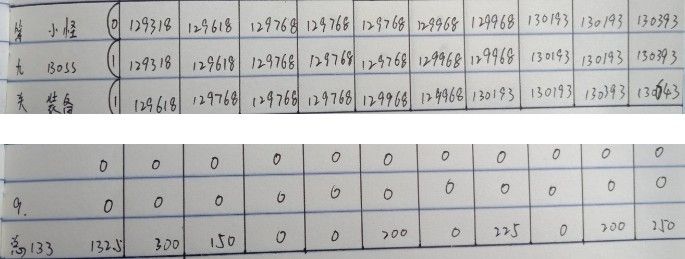 第 小怪 (0) 129318 129618 129768 129768 129768 129968 129968 130193 130193 130393
九 BOSS (1) 129318 129618 129768 129768 129768 129968 129968 130193 130193 130393
关 装备 (1) 129618 129768 129768 129768 129968 129968 130193 130193 130393 130643
0 0 0 0 0 0 0 0 0 0 0
9. 0 0 0 0 0 0 0 0 0 0 0
总133 1325 300 150 0 0 200 0 225 0 200 250